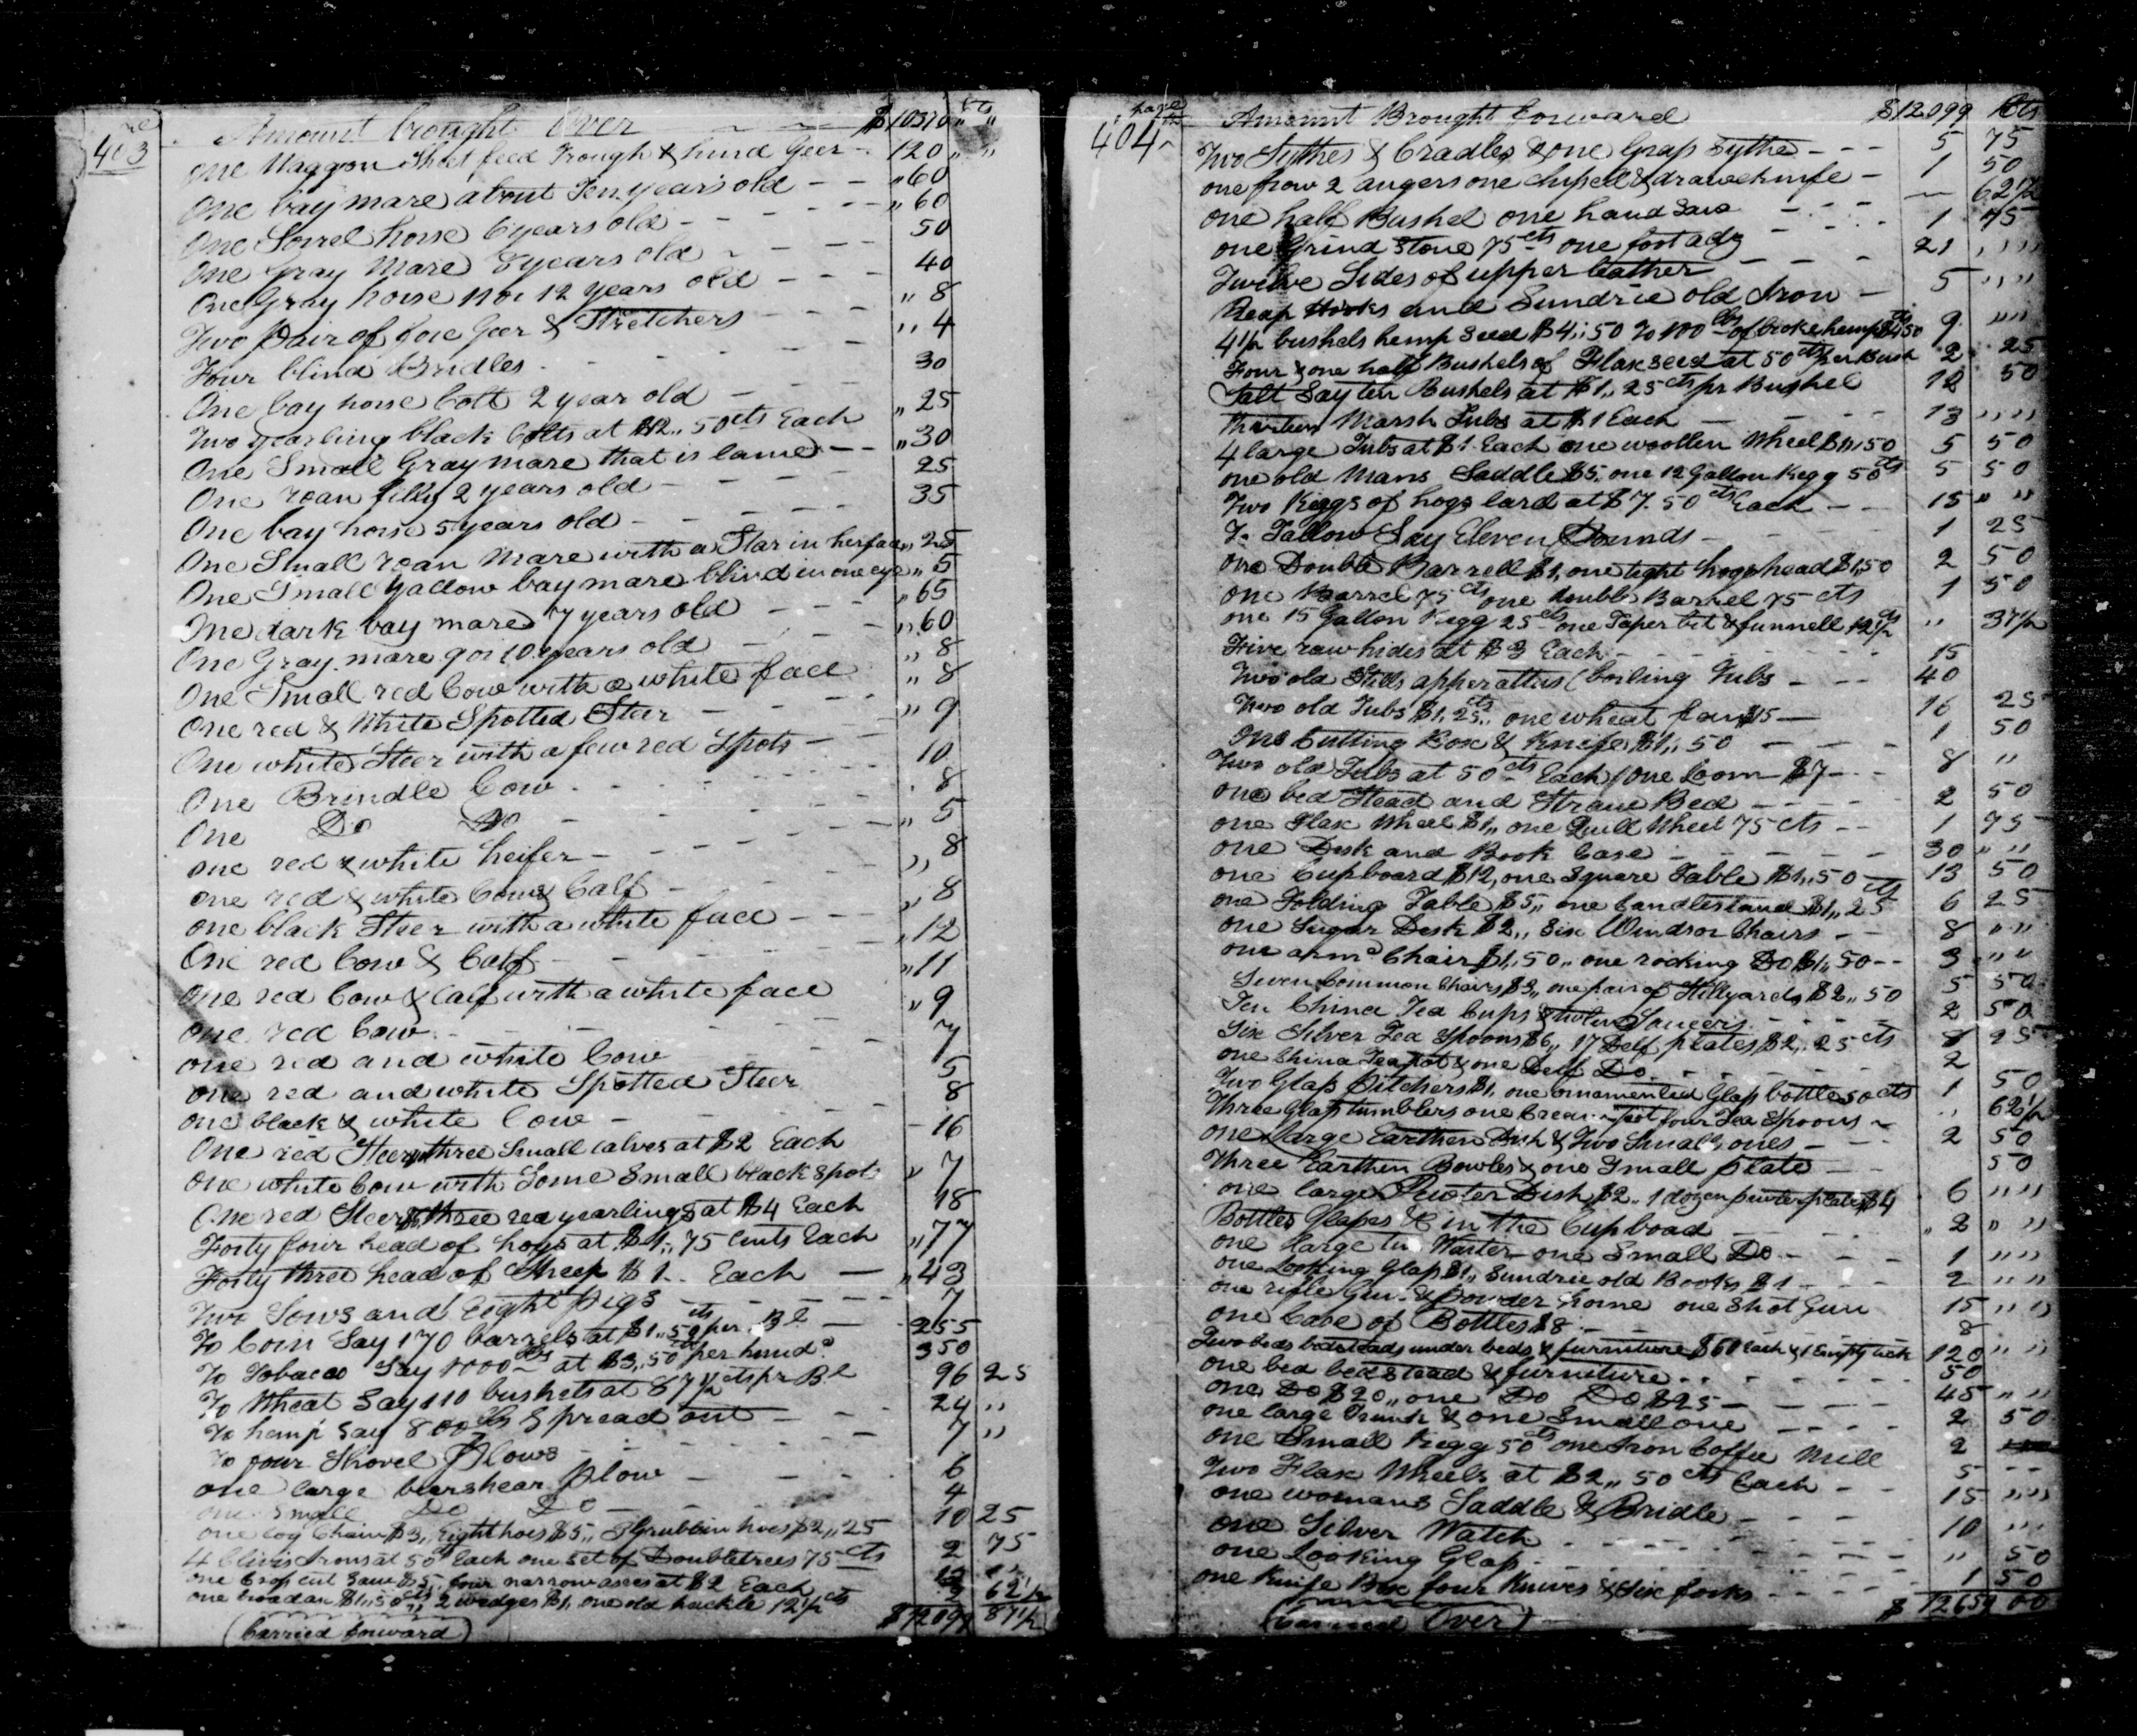 403
Amount brought Over $10370 " cts "
One Waggon Sheet feed Trough & hind Geer 120 " "
One bay mare about Ten years old " 60
One Sorrel horse 6 years old " 60
One Gray Mare 8 years old 50
One Gray horse 11 or 12 years old 40
Two pair of fore Geer & Stretchers " 8
Four blind Bridles " 4
One bay horse Colt 2 year old 30
Two yearling black Colts at $12,,50 cts Each " 25
One Small Gray mare that is lame " 30
One roan filly 2 years old 25
One bay horse 5 years old 35
One Small roan Mare with a Star in her face " 25
One Small yallow bay mare blind in one eye " 5
One dark bay mare 7 years old " 65
One Gray mare 9 or 10 years old " 60
One Small red Cow with a white face " 8
One red & White Spotted Steer " 8
One white Steer with a few red Spots " 9
One Brindle Cow 10
One Do Do 8
one red & white heifer " 5
one red & white Cow & Calf " 8
one black Steer with a white face " 8
One red Cow & Calf " 12
One red Cow & Calf with a white face " 11
one red Cow " 9
one red and white Cow 7
one red and white Spotted Steer 5
one black & white Cow 8
One red Steer three Small calves at $2 Each 16
one white Cow with Some Small black Spots " 7
One red Steer $6 three red yearlings at $4 Each 18
Forty four head of hogs at $1,,75 Cents Each " 77
Forty three head of Sheep $1.. Each " 43
Two Sows and Eight pigs 7
To Corn Say 170 barrels at $1,,50 cts per Bl 255
To Tobacco Say 10000 lbs at $3,,50 cts per hund. 350
To Wheat Say 110 bushels at 87½ cts pr Bl 96 25
To hemp Say 800 lbs Spread out 24 "
To four Shovel Plows 7 "
one large barshear plow 6
one Small Do Do 4
one log Chain $3,, Eight hoes $5,, 3 Grubbin hoes $2,,25 10 25
4 Clivis Irons at 50 cts Each one set of Doubletrees 75 cts 2 75
one Cross cut Saw $5,, four narrow axes at $2 Each 13
one broad ax $1,,50 cts 2 wedges $1, one old hackle 12½ cts 2 62½
(Carried forward) $12099 87½
page
404
Amount Brought forward $12.099 Cts
Two Sythes & Cradles & one Grass Sythe 5 75
one frow 2 augers one chisel & drawe knife 1 50
one half Bushel one hand Saw 62½
one Grind Stone 75 cts one foot adz 1 75
Twelve Sides of upper leather 21 " "
Reap Hooks and Sundrie old Iron 5 " "
4½ bushels hemp Seed $4,,50 To 100 lbs of broke hemp $4 50 cts 9 " "
Four & one half Bushels of Flax seed at 50 cts per Bush 2 25
Salt Say ten Bushels at $1,,25 cts pr Bushel 12 50
Thirteen Marsh Tubs at $1 Each 13 " "
4 large Tubs at $1 Each one woollen Wheel $1,,50 5 50
one old Mans Saddle $5,, one 12 Gallon Kegg 50 cts 5 50
Two Keggs of hogs lard at $7.50 cts Each 15 " "
To Tallow Say Eleven Pounds 1 25
one Double Barrell $1, one tight hogshead $1,50 2 50
one Barrel 75 cts one double Barrel 75 cts 1 50
one 15 Gallon Kegg 25 cts one Taper bit & funnell 12½ cts " 37½
Five raw hides at $3 Each 15
Two old Stills apperattus (boiling Tubs 40
Two old Tubs $1,25 cts,, one wheat fan $15 16 25
One Cutting Box & Knife $1,,50 1 50
Two old Tubs at 50 cts Each / One Loom $7 8 "
one bed Stead and Straw Bed 2 50
one Flax Wheel $1,, one Quill Wheel 75 cts 1 75
one Desk and Book Case 30 " "
one Cupboard $12, one Square Table $1,,50 13 50
one Folding Table $5,, one Candlestand $1,,25 cts 6 25
one Sugar Desk $2,, Six Windsor Chairs 8 " "
one armd Chair $1,,50,, one rocking Do $1,,50 3 " "
Seven Common Chairs $3,, one pair of Stillyards $2,,50 5 50
Ten China Tea Cups & twelve Saucers 2 50
Six Silver Tea Spoons $6,, 17 Delf plates $2,,25 cts 8 25
one China Teapot & one Delf Do 2
Two Glass Pitchers $1, one ornamented Glass bottle 50 cts 1 50
Three Glass tumblers one Cream pot four Tea Spoons " 62½
one large Earthen Dish & Two Small ones 2 50
Three Earthen Bowles & one Small plate 50
one large Pewter Dish $2,, 1 dozen pewter plates $4 6 " "
Bottles Glasses &c in the Cupboad " 2 " "
one large tin Waiter one Small Do 1 " "
one Looking Glass $1,, Sundrie old Books $1 2 " "
one rifle Gun & powder horne one Shot Gun 15 " "
one Case of Bottles $8 8
Two beds bedsteads under beds & furniture $60 Each & 1 Empty tick 120 " "
one bed bedstead & furniture 50
one Do $20,, one Do Do $25 45 " "
one large Trunk & one Small one 2 50
one Small Kegg 50 cts one Iron Coffee Mill 2
Two Flax Wheels at $2,,50 cts Each 5
one womans Saddle & Bridle 15 " "
one Silver Watch 10 " "
one Looking Glass " 50
one Knife Box four Knives & Six forks 1 50
(Carried Over) $ 12659 00